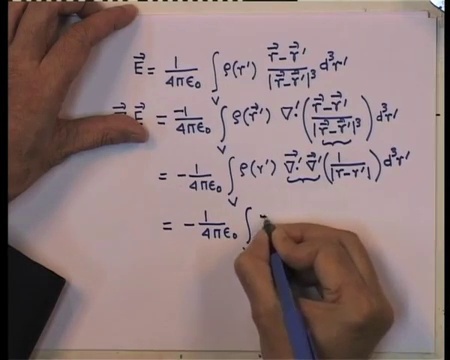 E⃗ = 1/4πε₀ ∫ᵥ ρ(r') (r⃗-r⃗')/|r⃗-r⃗'|³ d³r'
E⃗ = -1/4πε₀ ∫ᵥ ρ(r⃗') ∇'. ( (r⃗-r⃗')/|r⃗-r⃗'|³ ) d³r'
= - 1/4πε₀ ∫ᵥ ρ(r') ∇⃗'. ∇⃗' ( 1/|r-r'| ) d³r'
= - 1/4πε₀ ∫